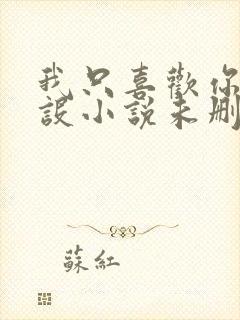 我只喜歡你
設小說未刪
蘇紅